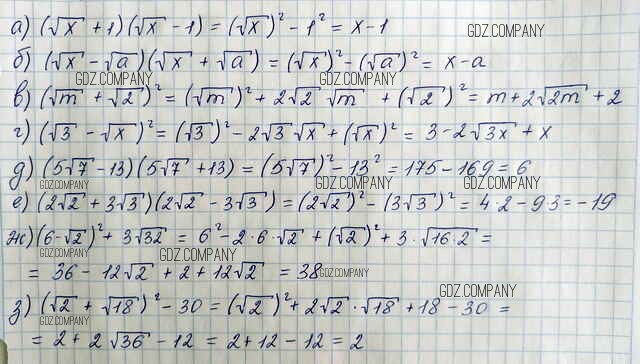 а) (√x + 1)(√x - 1) = (√x)² - 1² = x - 1
GDZ.COMPANY
б) (√x - √a)(√x + √a) = (√x)² - (√a)² = x - a
GDZ.COMPANY GDZ.COMPANY
в) (√m + √2)² = (√m)² + 2√2 √m + (√2)² = m + 2√2m + 2
г) (√3 - √x)² = (√3)² - 2√3 √x + (√x)² = 3 - 2√3x + x
д) (5√7 - 13)(5√7 + 13) = (5√7)² - 13² = 175 - 169 = 6
GDZ.COMPANY GDZ.COMPANY GDZ.COMPANY
е) (2√2 + 3√3)(2√2 - 3√3) = (2√2)² - (3√3)² = 4·2 - 9·3 = -19
ж) (6 - √2)² + 3√32 = 6² - 2·6·√2 + (√2)² + 3·√16·2 =
GDZ.COMPANY GDZ.COMPANY
= 36 - 12√2 + 2 + 12√2 = 38
GDZ.COMPANY
GDZ.COMPANY
з) (√2 + √18)² - 30 = (√2)² + 2√2 · √18 + 18 - 30 =
GDZ.COMPANY
= 2 + 2√36 - 12 = 2 + 12 - 12 = 2